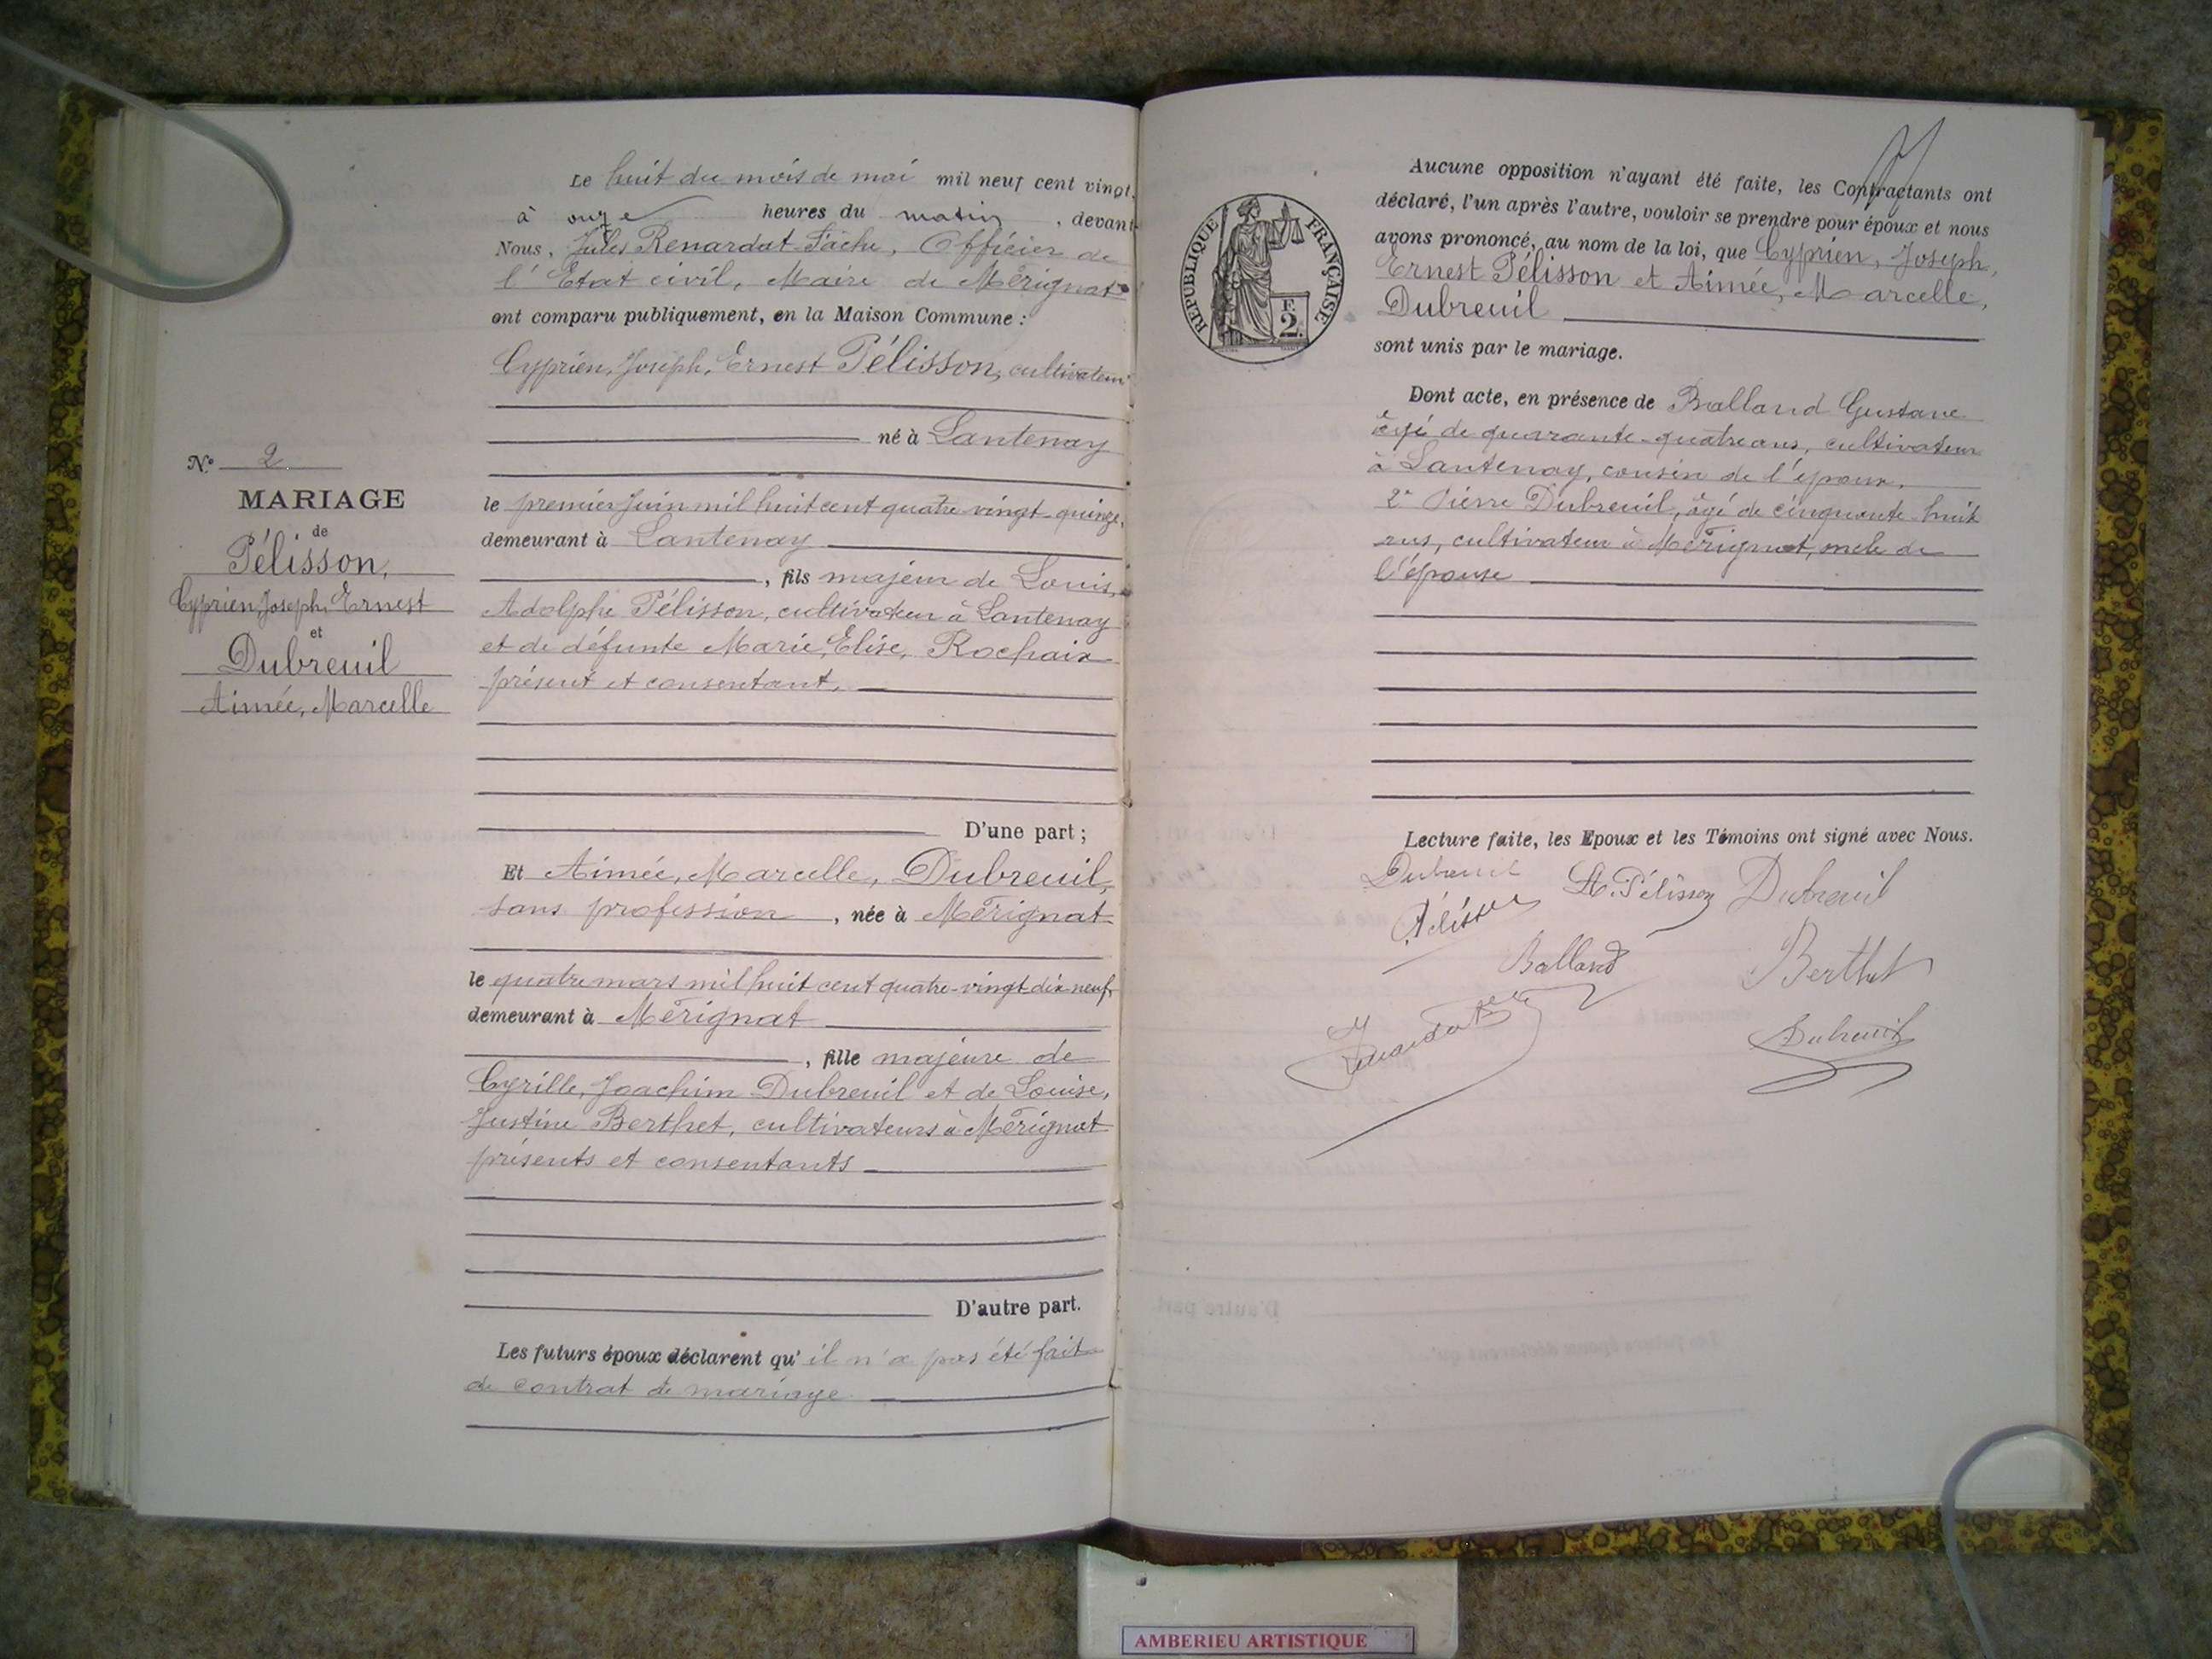 Le huit du mois de mai mil neuf cent vingt,
à onze heures du matin, devant
Nous, Jules Renardat-Fâche, Officier de
l'Etat civil, Maire de Mérignat
ont comparu publiquement, en la Maison Commune :
Cyprien, Joseph, Ernest Pélisson, cultivateur
né à Lantenay
N° 2
MARIAGE
de
Pélisson,
Cyprien, Joseph, Ernest
et
Dubreuil
Aimée, Marcelle
le premier Juin mil huit cent quatre-vingt-quinze,
demeurant à Lantenay
, fils majeur de Louis,
Adolphe Pélisson, cultivateur à Lantenay
et de défunte Marie, Elise, Rochaix
présent et consentant,
D'une part ;
Et Aimée, Marcelle, Dubreuil,
sans profession, née à Mérignat
le quatre mars mil huit cent quatre-vingt-dix-neuf,
demeurant à Mérignat
, fille majeure de
Cyrille, Joachim Dubreuil et de Louise,
Justine Berthet, cultivateurs à Mérignat
présents et consentants
D'autre part.
Les futurs époux déclarent qu'il n'a pas été fait
de contrat de mariage
Aucune opposition n'ayant été faite, les Contractants ont
déclaré, l'un après l'autre, vouloir se prendre pour époux et nous
avons prononcé, au nom de la loi, que Cyprien, Joseph,
Ernest Pélisson et Aimée, Marcelle,
Dubreuil
sont unis par le mariage.
REPUBLIQUE FRANÇAISE
F.
2.
Dont acte, en présence de Balland Gustave
âgé de quarante-quatre ans, cultivateur
à Lantenay, cousin de l'époux.
2° Pierre Dubreuil, âgé de cinquante-huit
ans, cultivateur à Mérignat, oncle de
l'épouse
Lecture faite, les Epoux et les Témoins ont signé avec Nous.
Dubreuil A. Pélisson Dubreuil
Pélisson
Balland Berthet
Dubreuil
AMBERIEU ARTISTIQUE